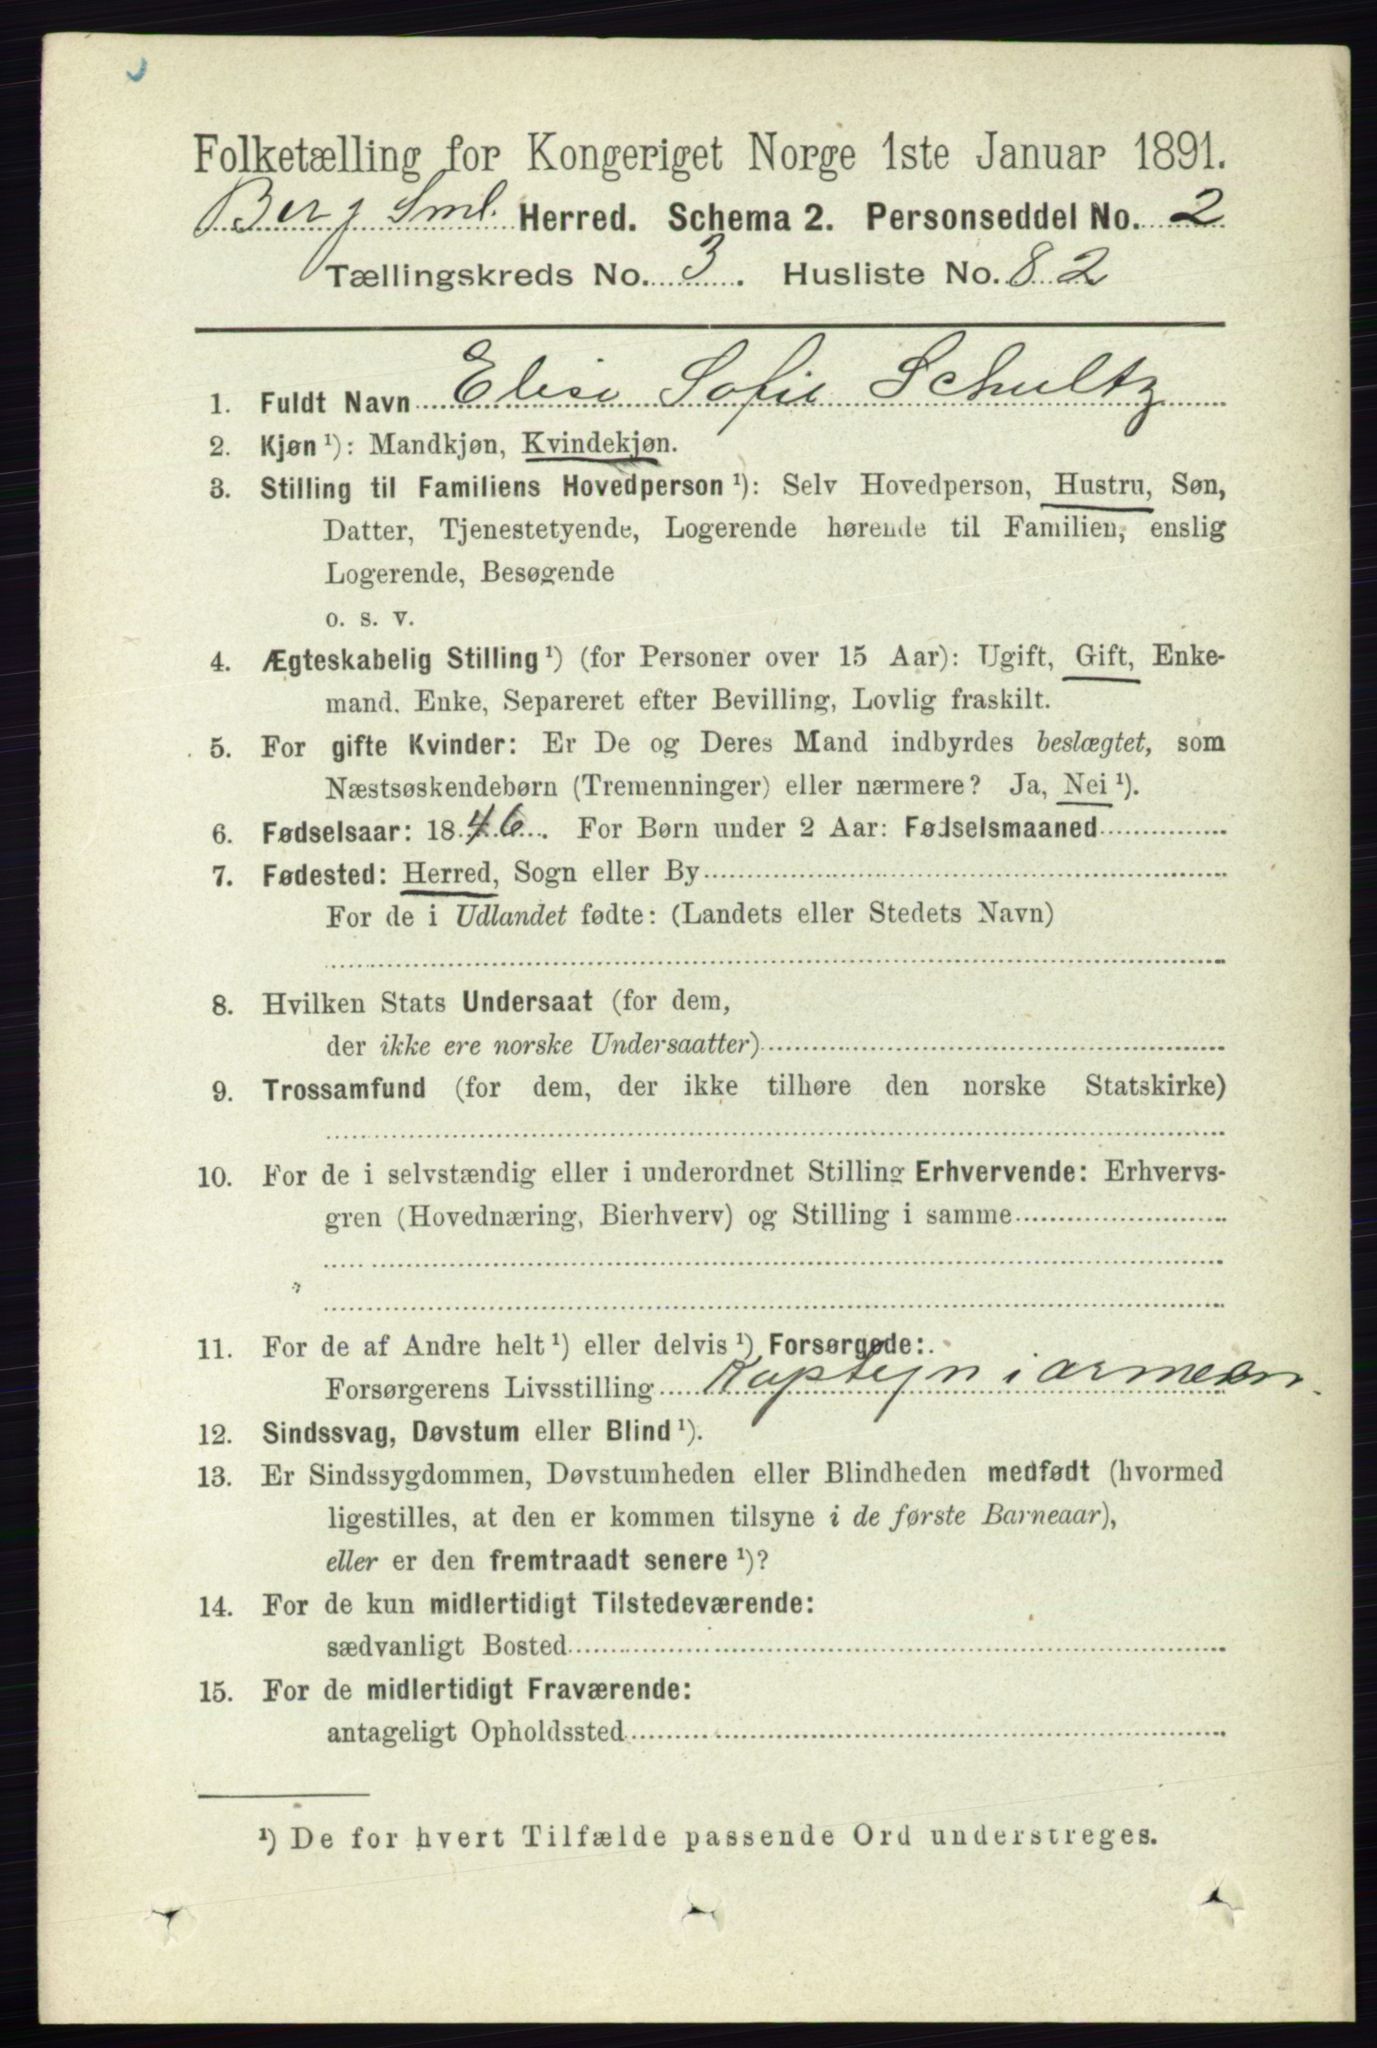 Folketælling for Kongeriget Norge 1ste Januar 1891.
Berg Sml. Herred. Schema 2. Personseddel No. 2
Tællingskreds No. 3. Husliste No. 82
1. Fuldt Navn Elise Sofie Schultz
2. Kjøn ¹): Mandkjøn, Kvindekjøn.
3. Stilling til Familiens Hovedperson ¹): Selv Hovedperson, Hustru, Søn,
Datter, Tjenestetyende, Logerende hørende til Familien, enslig
Logerende, Besøgende
o. s. v.
4. Ægteskabelig Stilling ¹) (for Personer over 15 Aar): Ugift, Gift, Enke-
mand. Enke, Separeret efter Bevilling, Lovlig fraskilt.
5. For gifte Kvinder: Er De og Deres Mand indbyrdes beslægtet, som
Næstsøskendebørn (Tremenninger) eller nærmere? Ja, Nei ¹).
6. Fødselsaar: 1846. For Børn under 2 Aar: Fødselsmaaned
7. Fødested: Herred, Sogn eller By
For de i Udlandet fødte: (Landets eller Stedets Navn)
8. Hvilken Stats Undersaat (for dem,
der ikke ere norske Undersaatter)
9. Trossamfund (for dem, der ikke tilhøre den norske Statskirke)
10. For de i selvstændig eller i underordnet Stilling Erhvervende: Erhvervs-
gren (Hovednæring, Bierhverv) og Stilling i samme
11. For de af Andre helt ¹) eller delvis ¹) Forsørgede:
Forsørgerens Livsstilling Kaptejn i armeen.
12. Sindssvag, Døvstum eller Blind ¹).
13. Er Sindssygdommen, Døvstumheden eller Blindheden medfødt (hvormed
ligestilles, at den er kommen tilsyne i de første Barneaar),
eller er den fremtraadt senere ¹)?
14. For de kun midlertidigt Tilstedeværende:
sædvanligt Bosted
15. For de midlertidigt Fraværende:
antageligt Opholdssted
¹) De for hvert Tilfælde passende Ord understreges.